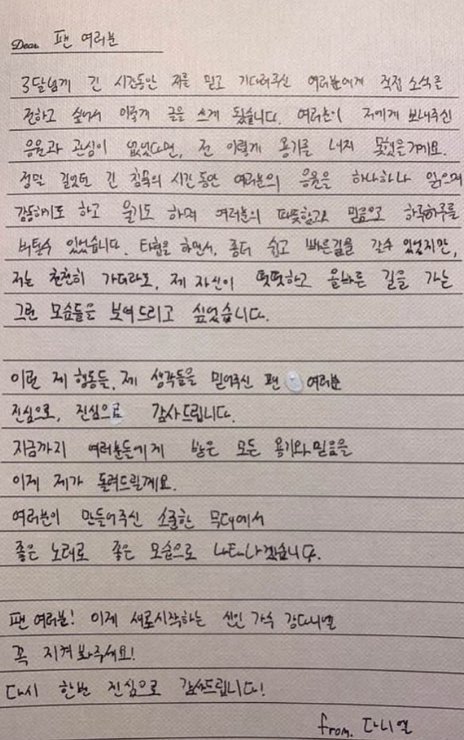 Dear. 팬 여러분
3달넘게 긴 시간동안 저를 믿고 기다려주신 여러분에게 직접 소식을
전하고 싶어서 이렇게 글을 쓰게 됐습니다. 여러분이 저에게 보내주신
응원과 관심이 없었다면, 전 이렇게 용기를 내지 못했을거에요.
정말 길었던 긴 침묵의 시간동안 여러분의 응원을 하나하나 읽으며
감동하기도 하고 울기도 하며 여러분의 따뜻함과 믿음으로 하루하루를
버틸수 있었습니다. 타협을 하면서, 좀더 쉽고 빠른길을 갈수 있었지만,
저는 천천히 가더라도, 제 자신이 떳떳하고 올바른 길을 가는
그런 모습들을 보여드리고 싶었습니다.
이런 제 행동들, 제 생각들을 믿어주신 팬 여러분
진심으로, 진심으로 감사드립니다.
지금까지 여러분들에게 받은 모든 용기와 믿음을
이제 제가 돌려드릴게요.
여러분이 만들어주신 소중한 무대에서
좋은 노래로 좋은 모습으로 나타나겠습니다.
팬 여러분! 이제 새로시작하는 신인 가수 강다니엘
꼭 지켜봐주세요!
다시 한번 진심으로 감사드립니다!
from. 다니엘